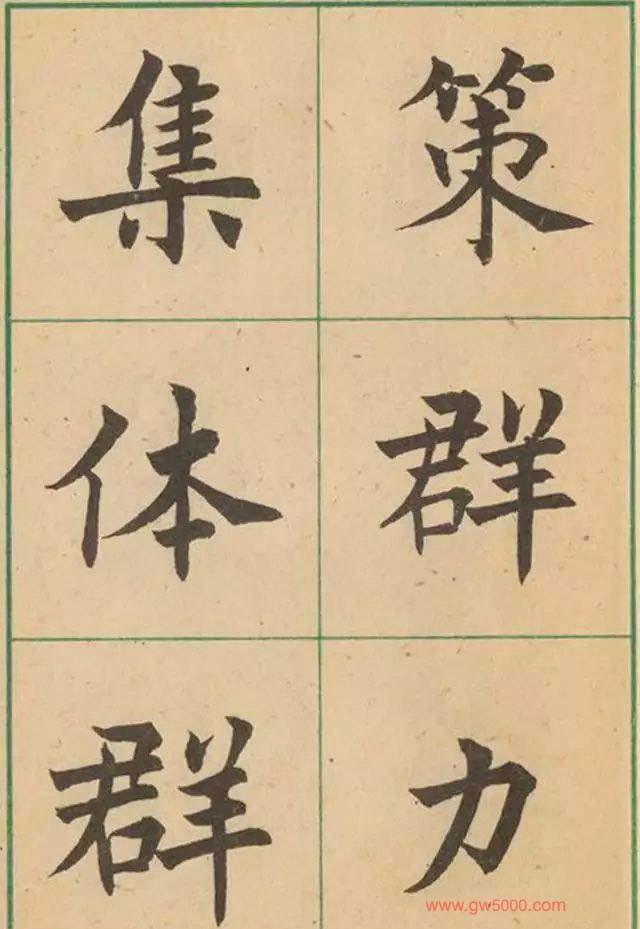 策群力
集体群
www.gw5000.com